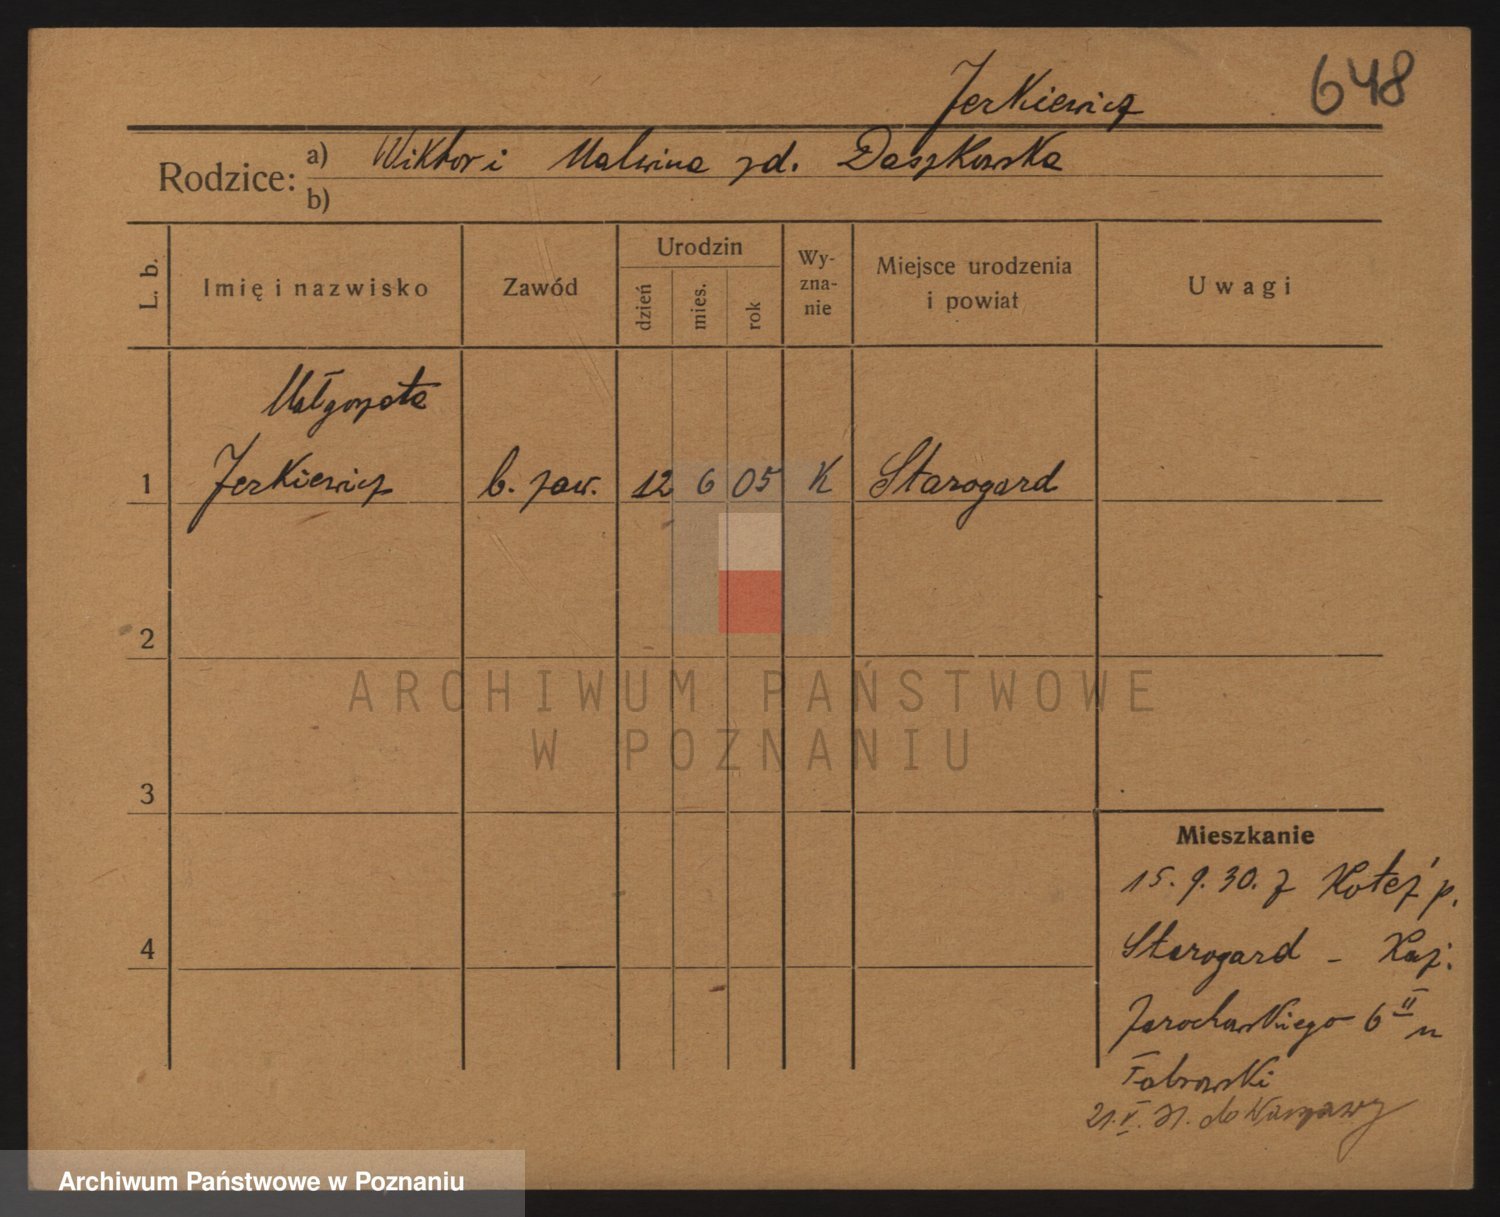 648
Jerkiewicz
Rodzice: a) Wiktor i Malwina zd. Daszkowska
b)
L. b.
Imię i nazwisko
Zawód
Urodzin
dzień
mies.
rok
Wy-
zna-
nie
Miejsce urodzenia
i powiat
Uwagi
Małgorzata
1 Jerkiewicz b. zaw. 12 6 05 K Starogard
2
ARCHIWUM PAŃSTWOWE
W POZNANIU
3
4
Mieszkanie
15. 9. 30. z p.
Starogard - Kaź.
Jarochowskiego 6 II u
21. V. 31. do Warszawy
Archiwum Państwowe w Poznaniu